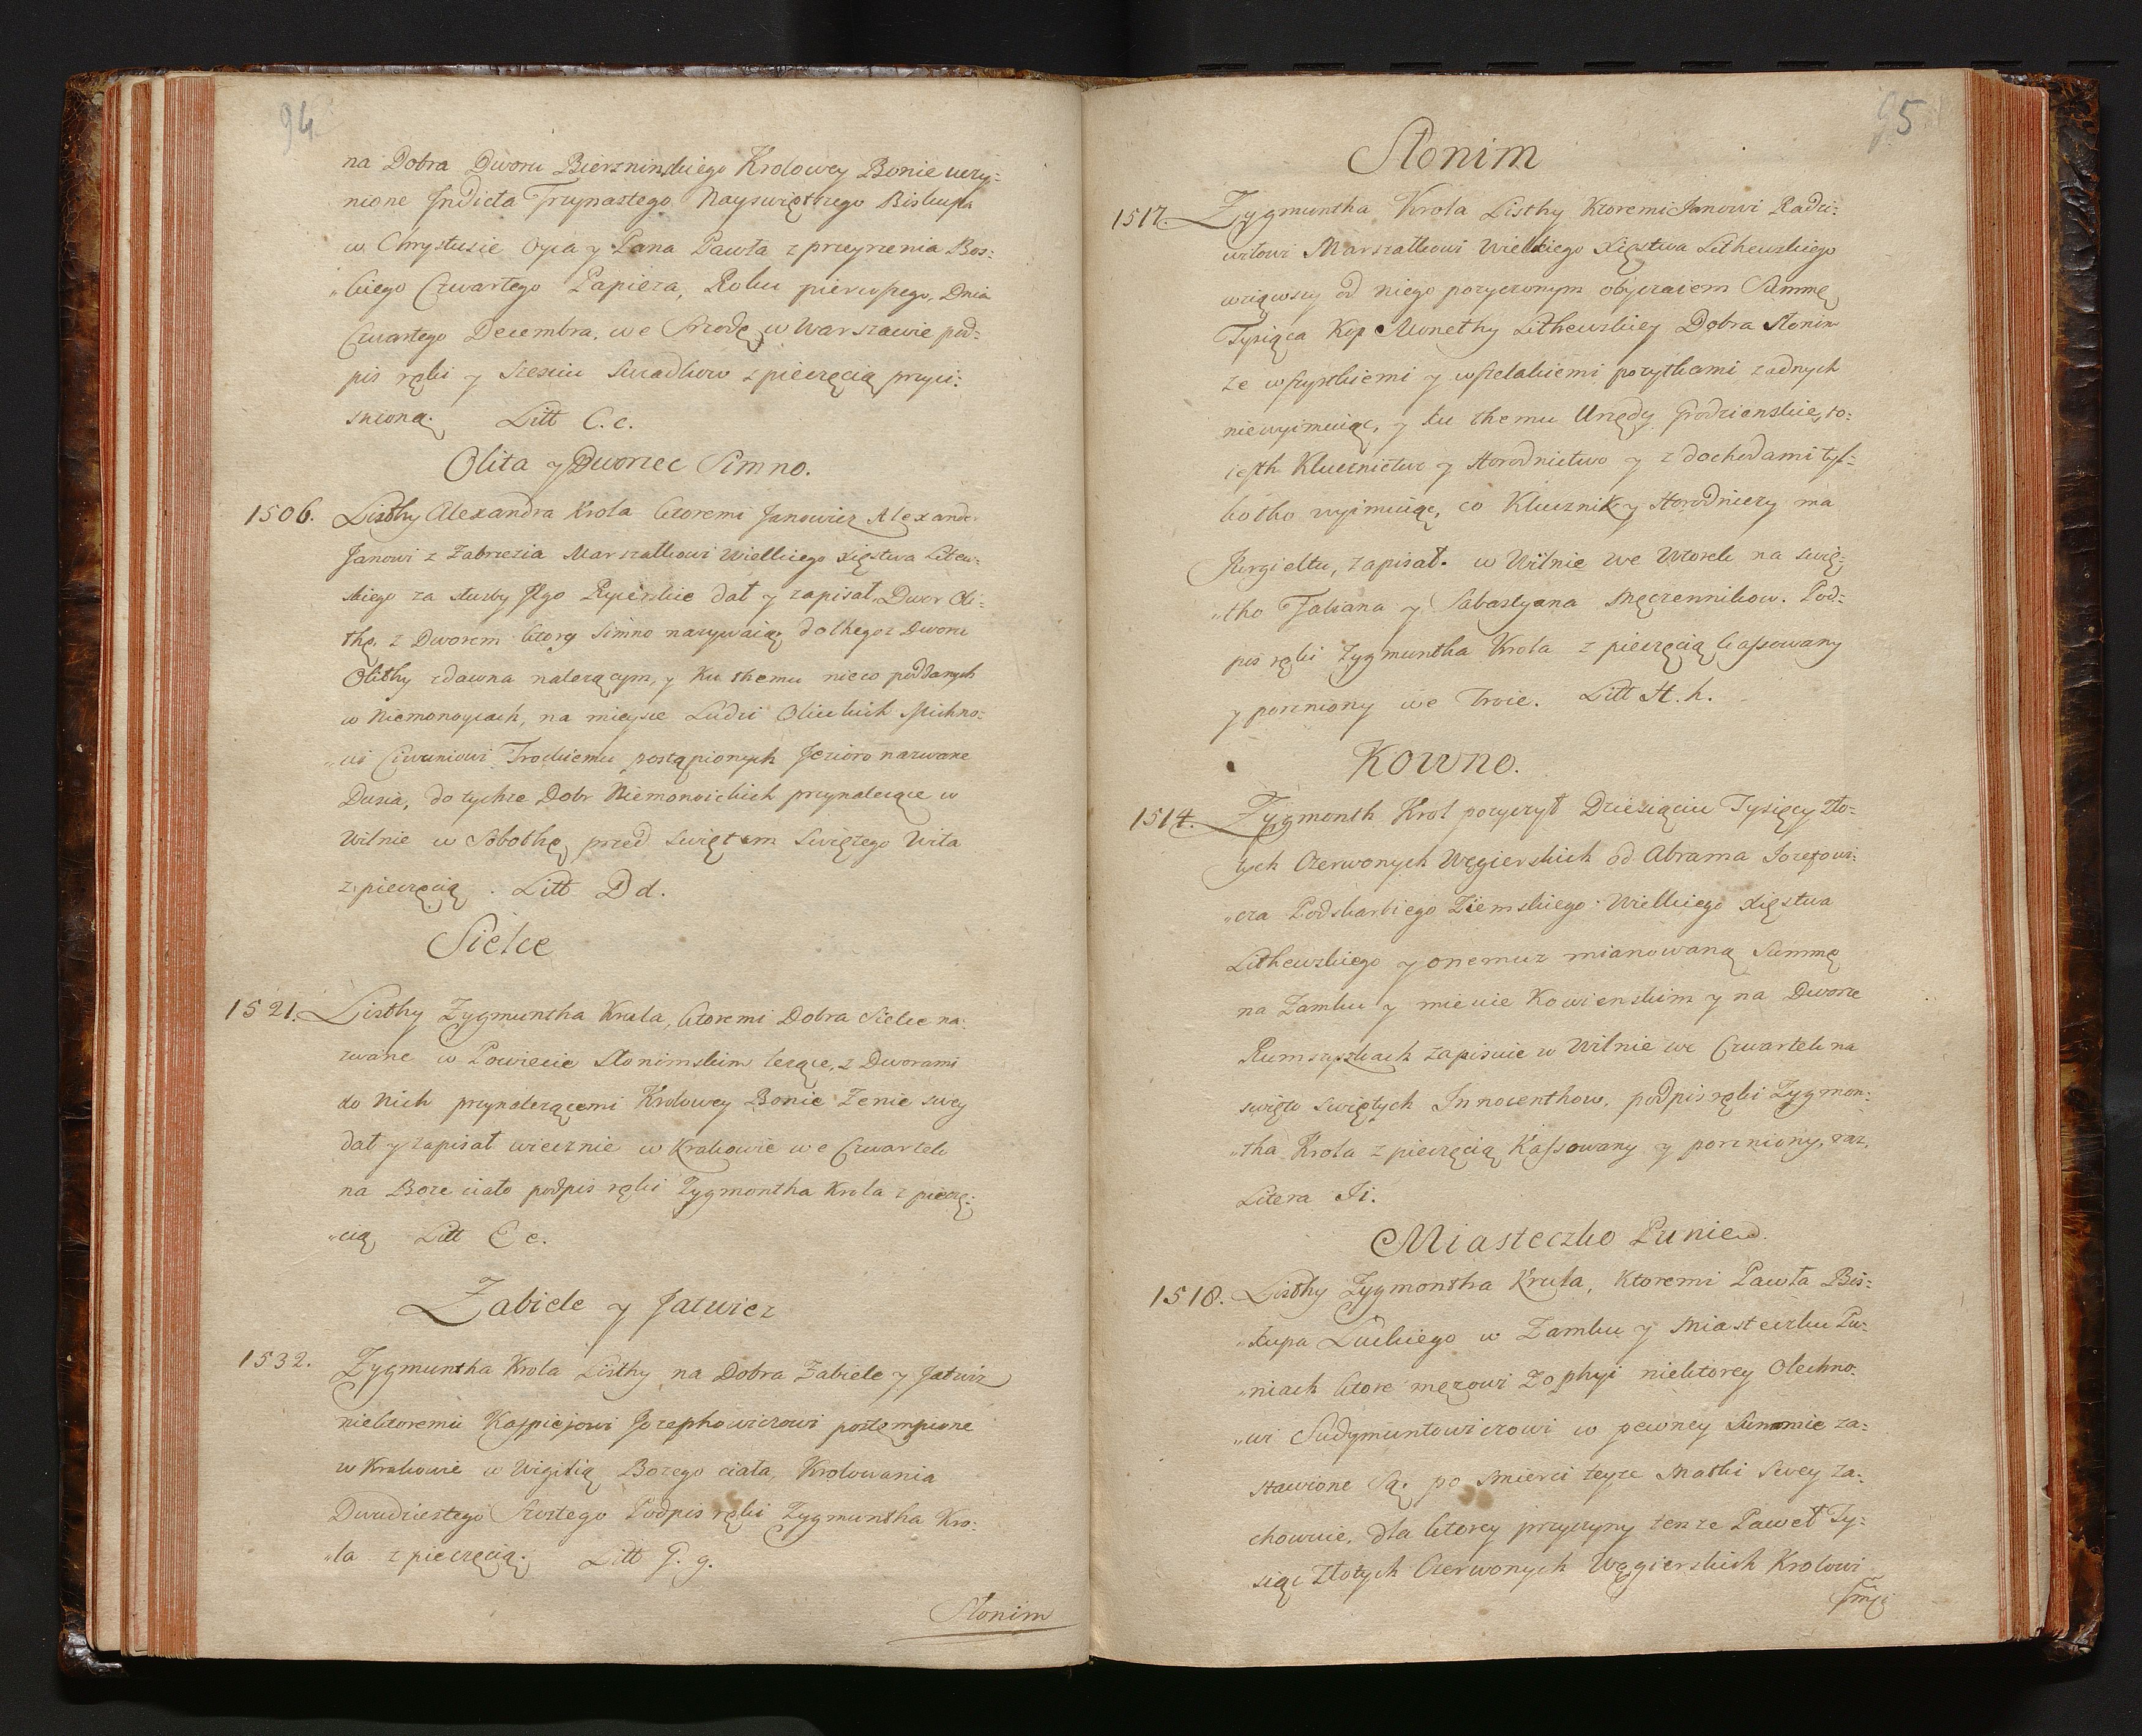 94
na Dobra Dworu Bierzninskiego Krolowey Bonie uczy=
nione Indicta Trzynastego Nayswiętszego Biskupa
w Chrystusie Oyca y Pana Pawła z przeyrzenia Bos=
"kiego Czwartego Papieza, Roku pierwszego, Dnia
Czwartego Decembra, we Srzodę w Warszawie pod=
pis ręki y Szesciu Swiadkow z pieczęcią przyci=
sniona. Litt C. c.
Olita y Dworzec Simno.
1506. Listhy Alexandra Krola ktoremi Janowicz Alexander
Janowi z Zabrzezia Marszałkowi Wielkiego Xięstwa Litew=
skiego za służby Jego Rycerskie dał y zapisał Dwor Oli=
thę, z Dworem ktory Simno nazywaią do thegoz Dworu
Olithy zdawna nalezącym, y Ku themu nieco poddanych
w Niemonoycach, na mieysce Ludzi Olickich Michno=
"wi Ciwuniowi Trockiemu postąpionych Jezioro nazwane
Dusia, do tychze Dobr Niemonoickich przynalezące w
Wilnie w Sobothę, przed Swiętem Swiętego Wita
z pieczęcią. Litt D d.
Sielce
1521. Listhy Zygmuntha Krula, ktoremi Dobra Sielce na=
zwane w Powiecie Słonimskim lezące, z Dworami
do Nich przynalezącemi Krolowey Bonie Zenie swey
dał y zapisał wiecznie w Krakowie we Czwartek
na Boze ciało podpis ręki Zygmontha Krola z pieczę=
"cią Litt E e.
Zabiele y Jatwiez
1532. Zygmuntha Krola Listhy na Dobra Zabiele y Jatwiz
niektoremu Kaspiejowi Jozephowiczowi postempione
w Krakowie w Wigilią Bozego ciała, Krolowania
Dwudziestego Szostego Podpis ręki Zygmuntha Kro=
"la z pieczęcią. Litt G. g.
Słonim
95
Słonim
1517. Zygmuntha Krola Listhy Ktoremi Janowi Radzi=
wiłowi Marszałkowi Wielkiego Xięstwa Lithewskiego
wziąwszy od niego pozyczonym obyczaiem Summę
Tysiąca Kop Monethy Lithewskiey Dobra Słonim
ze wszystkiemi y wszelakiemi pozytkami zadnych
niewyimuiąc, y ku themu Urzędy Grodzienskie, to=
iesth Klucznictwo y Horodnictwo y z dochodami tyl=
kotho wyimuiąc, co Klucznik y Horodniczy ma
Jurgieltu, zapisał. w Wilnie we Wtorek na swię=
"tho Fabiana y Sabastyana Męczennikow. Pod=
pis ręki Zygmuntha Krola z pieczęcią kassowany
y porzniony we Troie. Litt H. h.
Kowno.
1514. Zygmonth Krol pozyczył Dziesiąciu Tysięcy zło=
tych Czerwonych Węgierskich od Abrama Jozefowi=
"cza Podskarbiego Ziemskiego Wielkiego Xięstwa
Lithewskiego y onemuz mianowaną Summę
na Zamku y miescie Kowienskim y na Dworze
Rumszyszkach zapisuie w Wilnie we Czwartek na
swięto Swiętych Innocenthow, podpis ręki Zygmon=
"tha Krola z pieczęcią Kassowany y porzniony, raz,
Litera Ji.
Miasteczko Punie.
1518. Listhy Zygmontha Krula, Ktoremi Pawła Bis=
"kupa Luckiego w Zamku y Miasteczku Pu=
"niach ktore męzowi Zophyi niektorey Olechno=
"wi Sudymuntowiczowi w pewney Summie za=
stawione Są, po Smierci teyze Matki Swey za=
chowuie, dla ktorey przyczyny tenze Paweł Ty=
siąc Złotych Czerwonych Węgierskich Krolowi